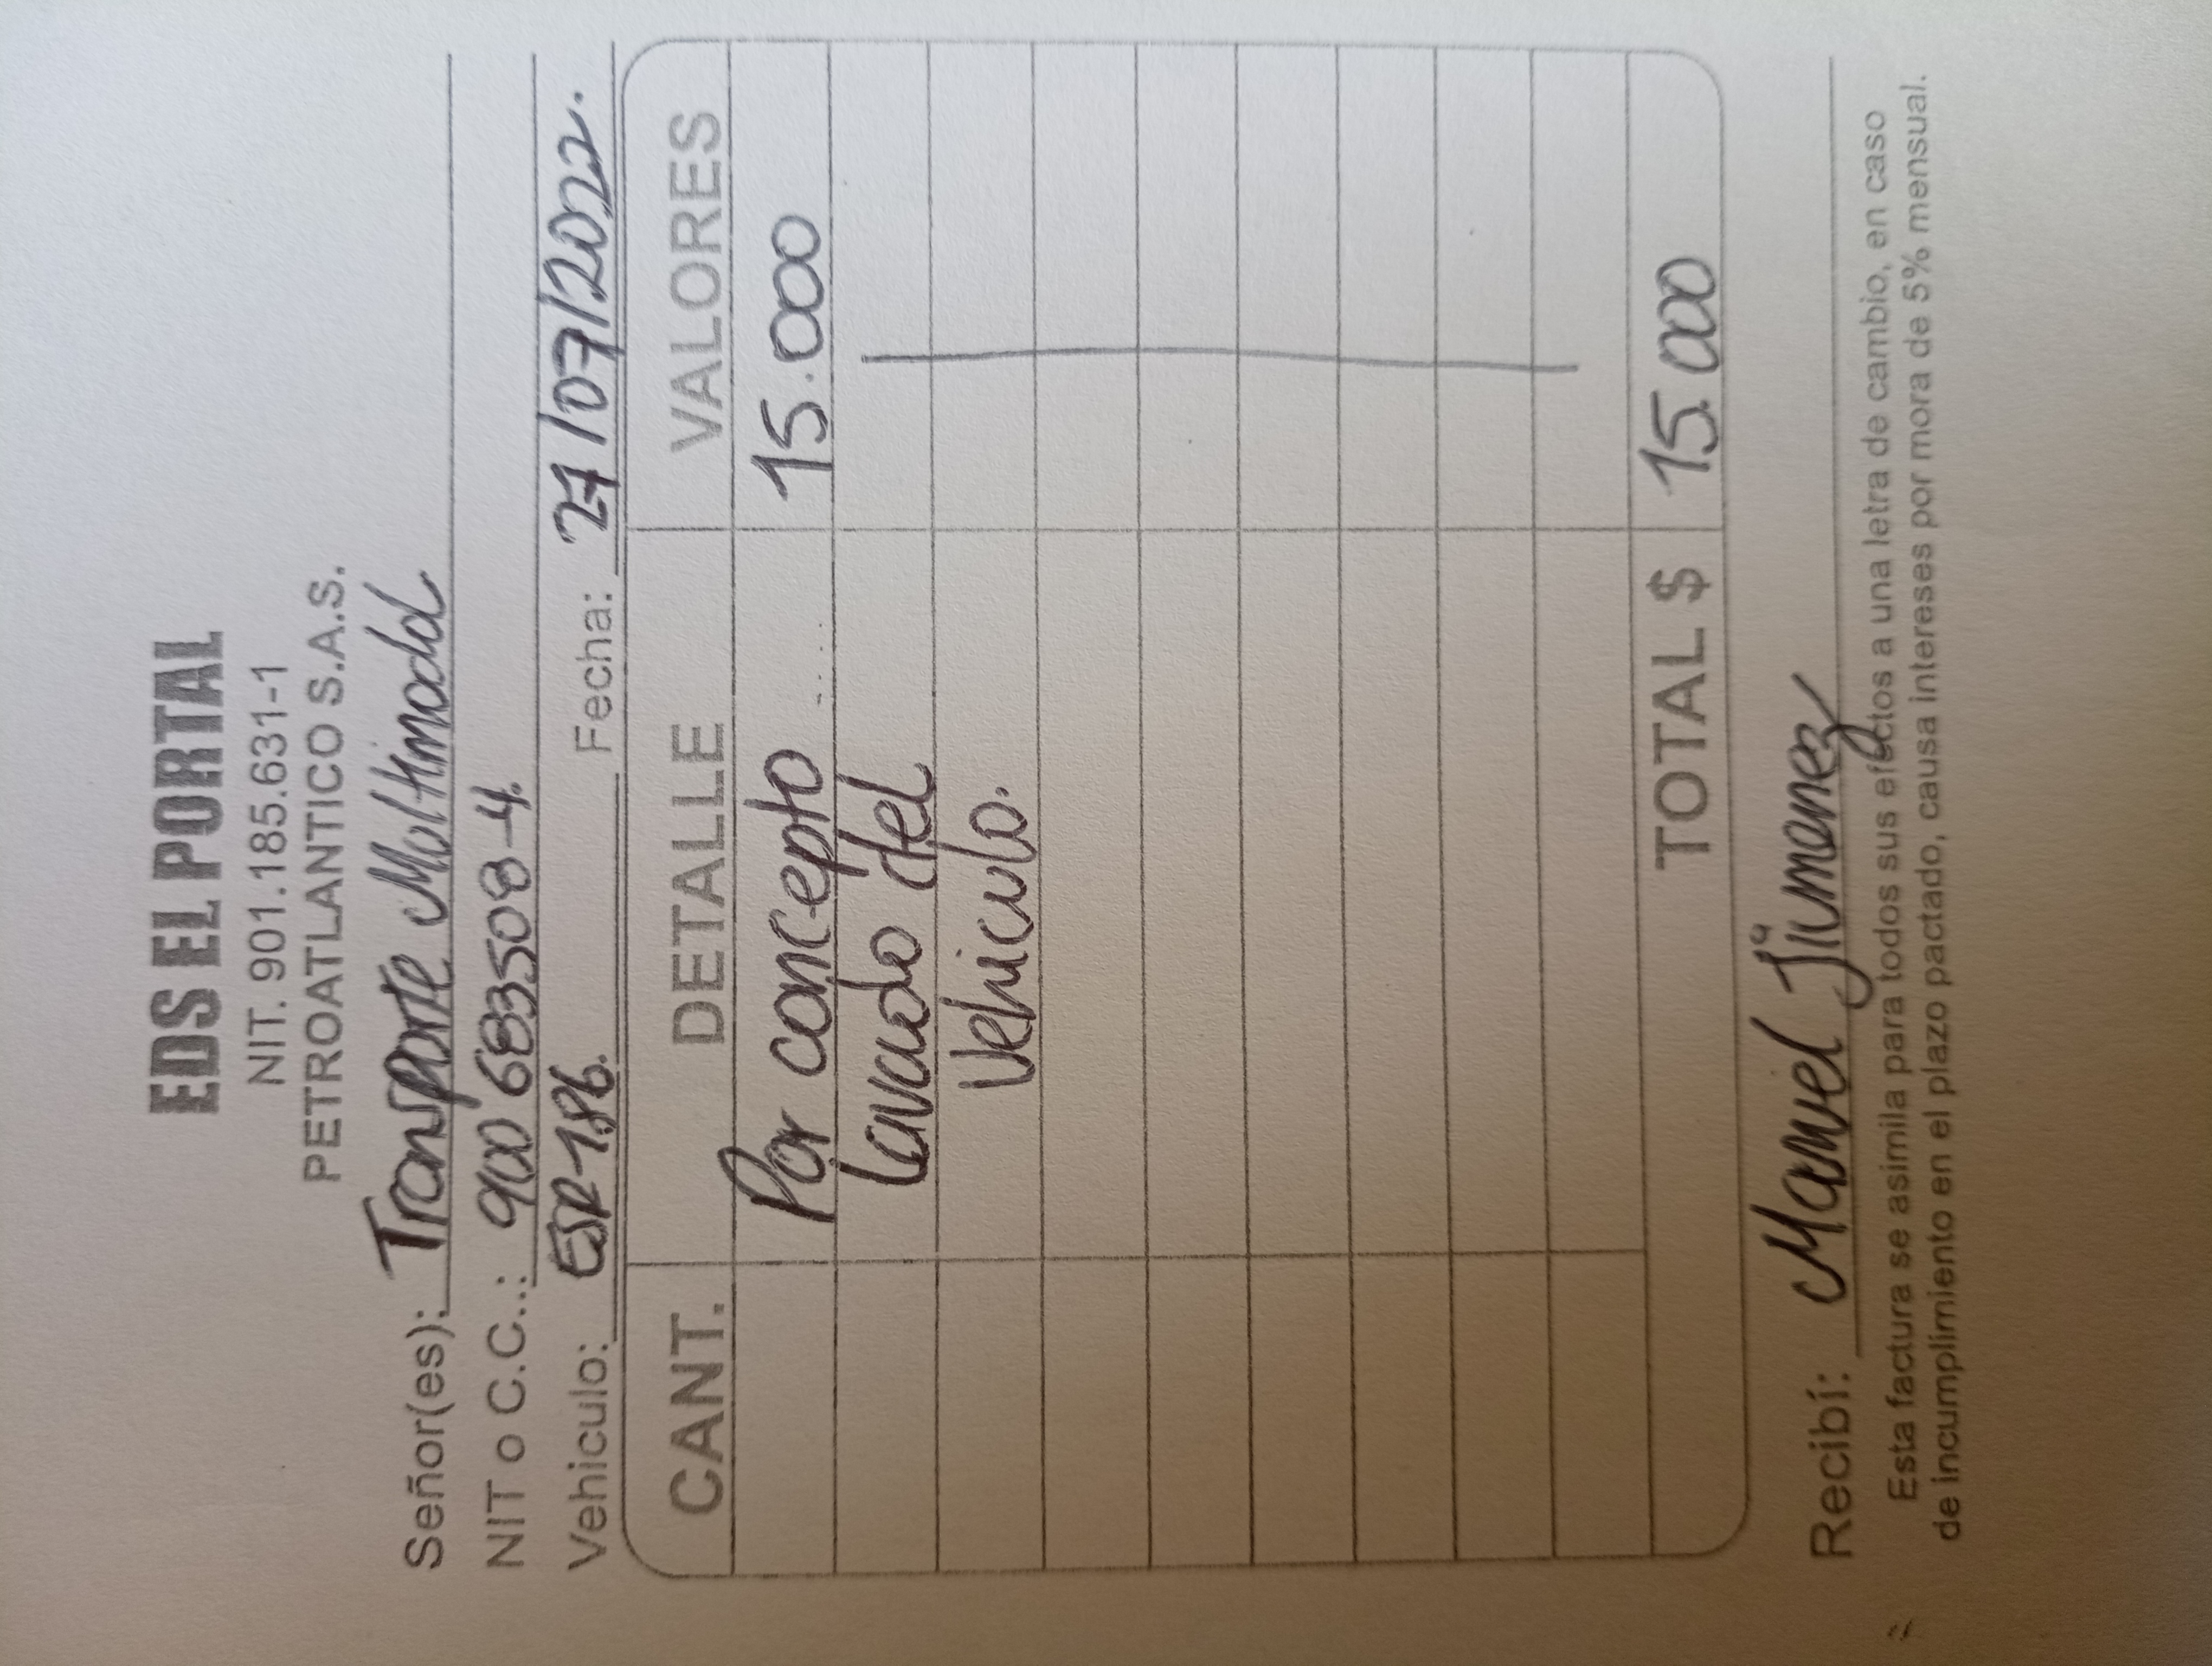 EDS EL PORTAL
NIT. 901.185.631-1
PETROATLANTICO S.A.S.
Señor(es): Transporte Multimodal
NIT o C.C..: 900'683508-4.
Vehiculo: ESR-786. Fecha: 27/07/2022.
CANT. DETALLE VALORES
Por concepto 15.000
Lavado del
Vehiculo.
TOTAL $ 15.000
Recibí: Manuel Jimenez
Esta factura se asimila para todos sus efectos a una letra de cambio, en caso
de incumplimiento en el plazo pactado, causa intereses por mora de 5% mensual.